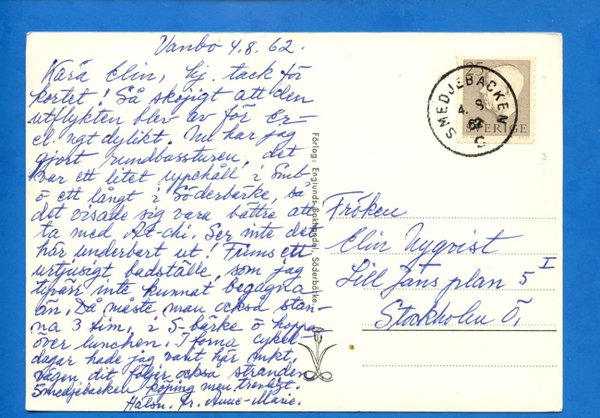 Vanbo 4.8.62.
Kära Elin, hj. tack för
kortet! Så skojigt att den
utflykten blev av för Er-
el. ngt dylikt. Nu har jag
gjort rundbussturen, det
var ett litet uppehåll i Smb
o ett långt i Söderbärke, så
det visade sig vara bättre att
ta med At-chi. Ser inte det
här underbart ut! Finns ett
urtjusigt badställe, som jag
tyvärr inte kunnat begagna
än. Då måste man också stan-
na 3 tim. i S-bärke o hoppa
över lunchen. I forna cykel
dagar hade jag varit här mkt,
vägen dit följer också stranden
Smedjebacken köping men trevligt.
Hälsn. fr. Anne-Marie.
Förlag: Englunds Bokhandel, Söderbärke.
25
SVERIGE
SMEDJEBACKEN
4. 8
62
C
Fröken
Elin Nyqvist
Lill Jans plan 5 I
Stockholm Ö.